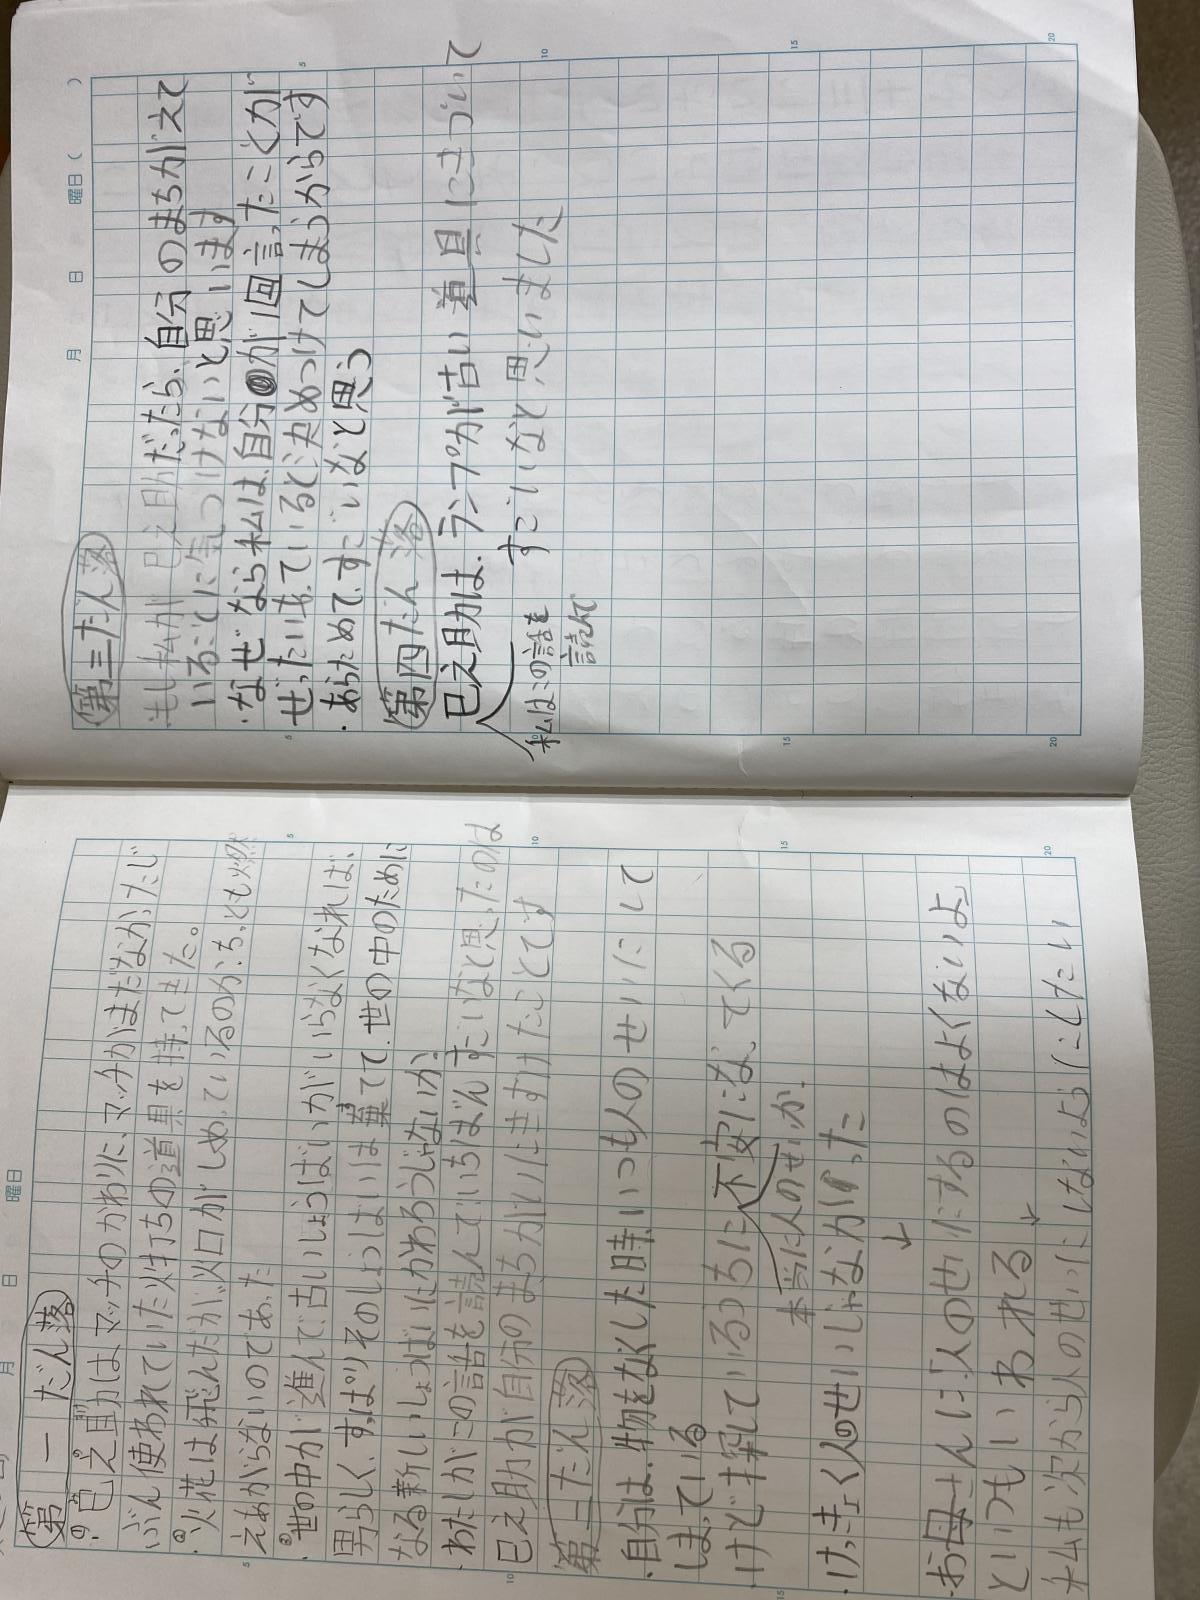 月 日 曜日
第一だん落
・①巳之助はマッチのかわりに、マッチがまだなかったじ
ぶん使われていた火打ちの道具を持ってきた。
・①火花は飛んだが、火口がしめっているのか、ちっとも燃
えあがらないのであった
・②世の中が進んで、古いしょうばいがいらなくなれば、
男らしく、すっぱりそのしょうばいは棄てて、世の中のために
なる新しいしょうばいにかわろうじゃないか。
・わたしがこの話を読んでいちばんすごいなと思ったのは
巳之助が自分のまちがいにきずけたことです
第二だん落
・自分は、物をなくした時、いつも人のせいにして
しまっている
・けど探しているうちに不安になってくる
本当に人のせいか、
・けっきょく人のせいじゃなかった
↓
・お母さんに「人のせいにするのはよくないよ」
といつもいわれる ↓
私も次から人のせいにしないようにしたい
月 日 曜日( )
第三だん落
・もし私が巳之助だったら、自分のまちがえて
いることに気づけないと思います
・なぜなら私は、自分が1回言ったことが
ぜったいあっていると決めつけてしまうからです
・あらためて、すごいなと思う
第四だん落
巳之助は、ランプが古い道具にきづいて
私はこの話を
読んで
すごいなと思いました